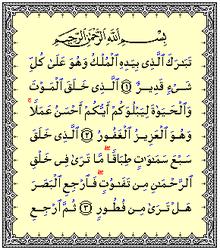 بِسْمِ ٱللَّهِ ٱلرَّحْمَٰنِ ٱلرَّحِيمِ
تَبَٰرَكَ ٱلَّذِى بِيَدِهِ ٱلْمُلْكُ وَهُوَ عَلَىٰ كُلِّ
شَىْءٍ قَدِيرٌ ١ ٱلَّذِى خَلَقَ ٱلْمَوْتَ
وَٱلْحَيَوٰةَ لِيَبْلُوَكُمْ أَيُّكُمْ أَحْسَنُ عَمَلًا ۚ
وَهُوَ ٱلْعَزِيزُ ٱلْغَفُورُ ٢ ٱلَّذِى خَلَقَ
سَبْعَ سَمَٰوَٰتٍ طِبَاقًا ۖ مَّا تَرَىٰ فِى خَلْقِ
ٱلرَّحْمَٰنِ مِن تَفَٰوُتٍ ۖ فَٱرْجِعِ ٱلْبَصَرَ
هَلْ تَرَىٰ مِن فُطُورٍ ٣ ثُمَّ ٱرْجِعِ